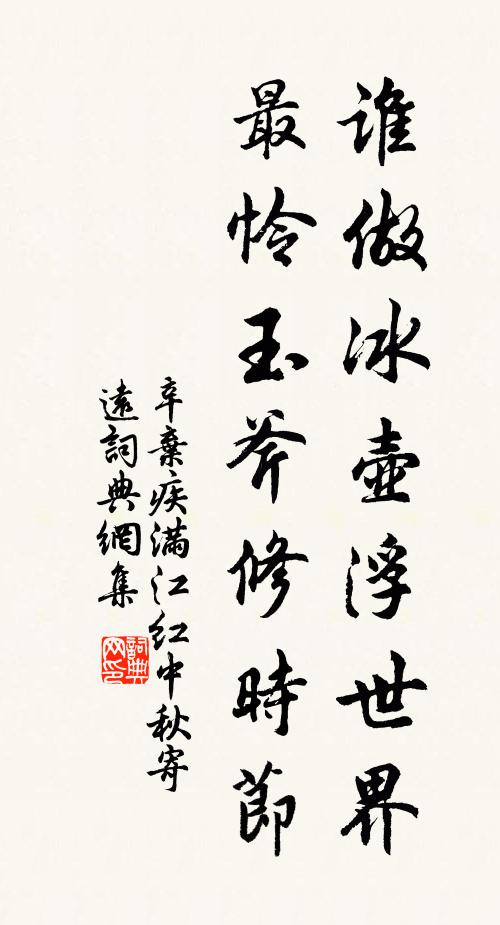 誰做冰壺浮世界
最怜玉斧修時節
辛棄疾滿江红中秋寄
遠詞典網集
詞典
网印